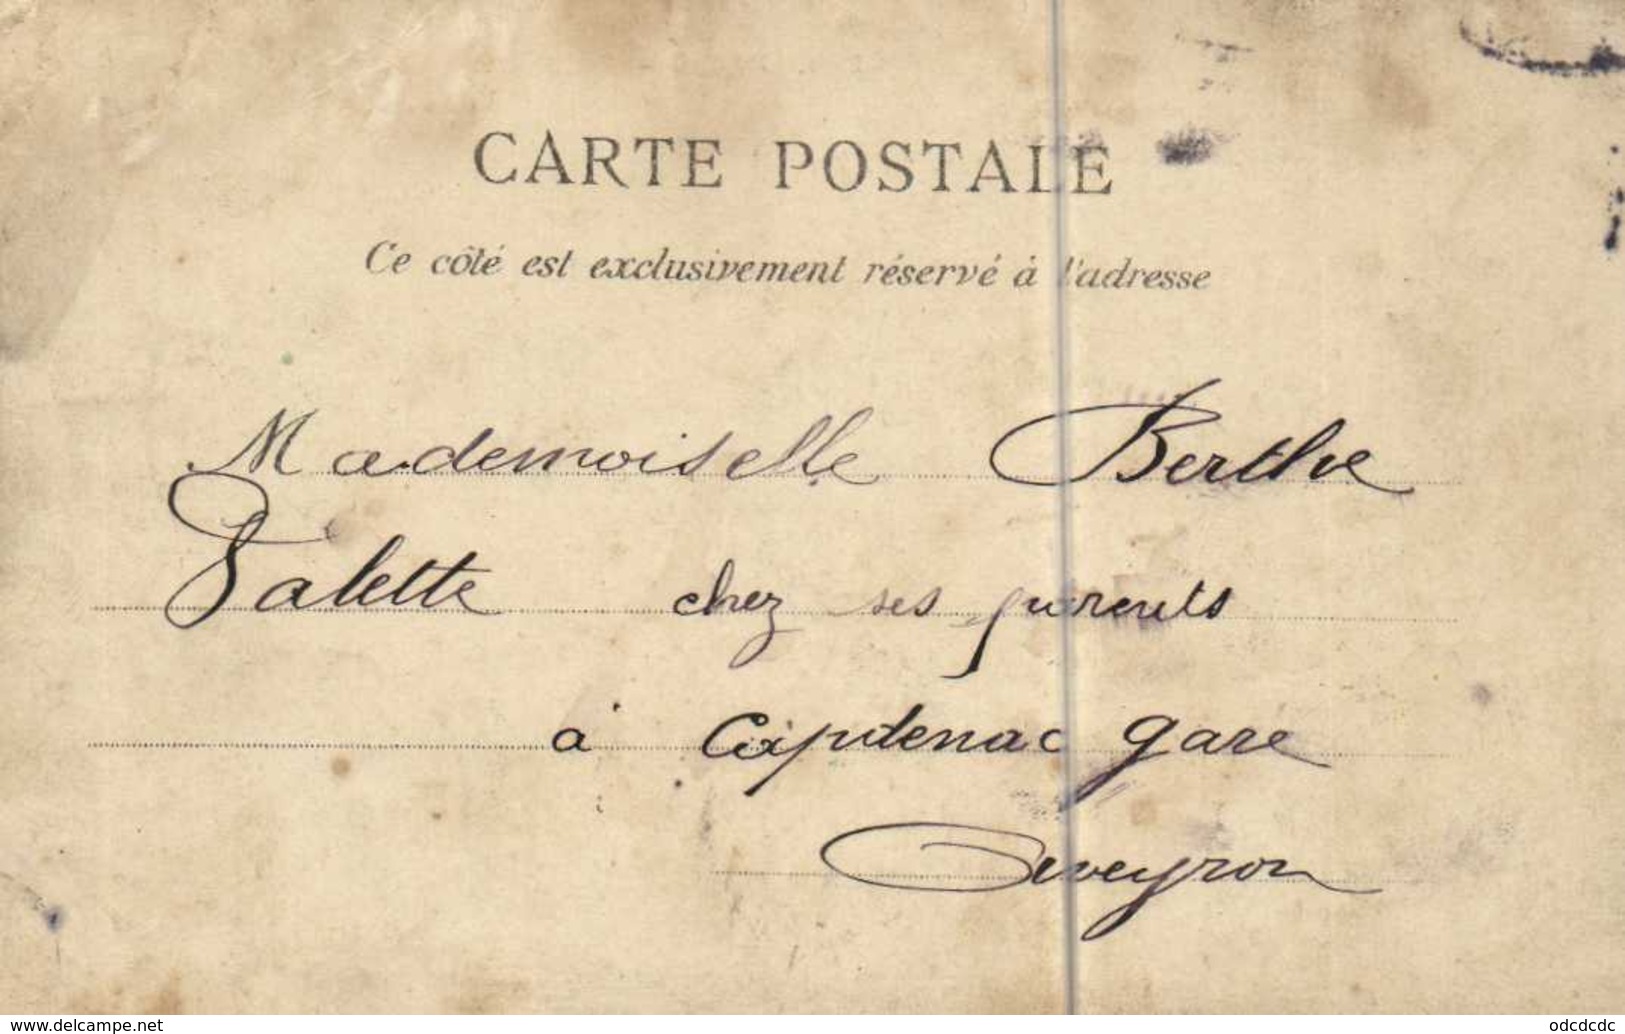 CARTE POSTALE
Ce côté est exclusivement réservé à l'adresse
Mademoiselle Berthe
Valette chez ses parents
à Capdenac gare
Aveyron
www.delcampe.net
odcdcdc